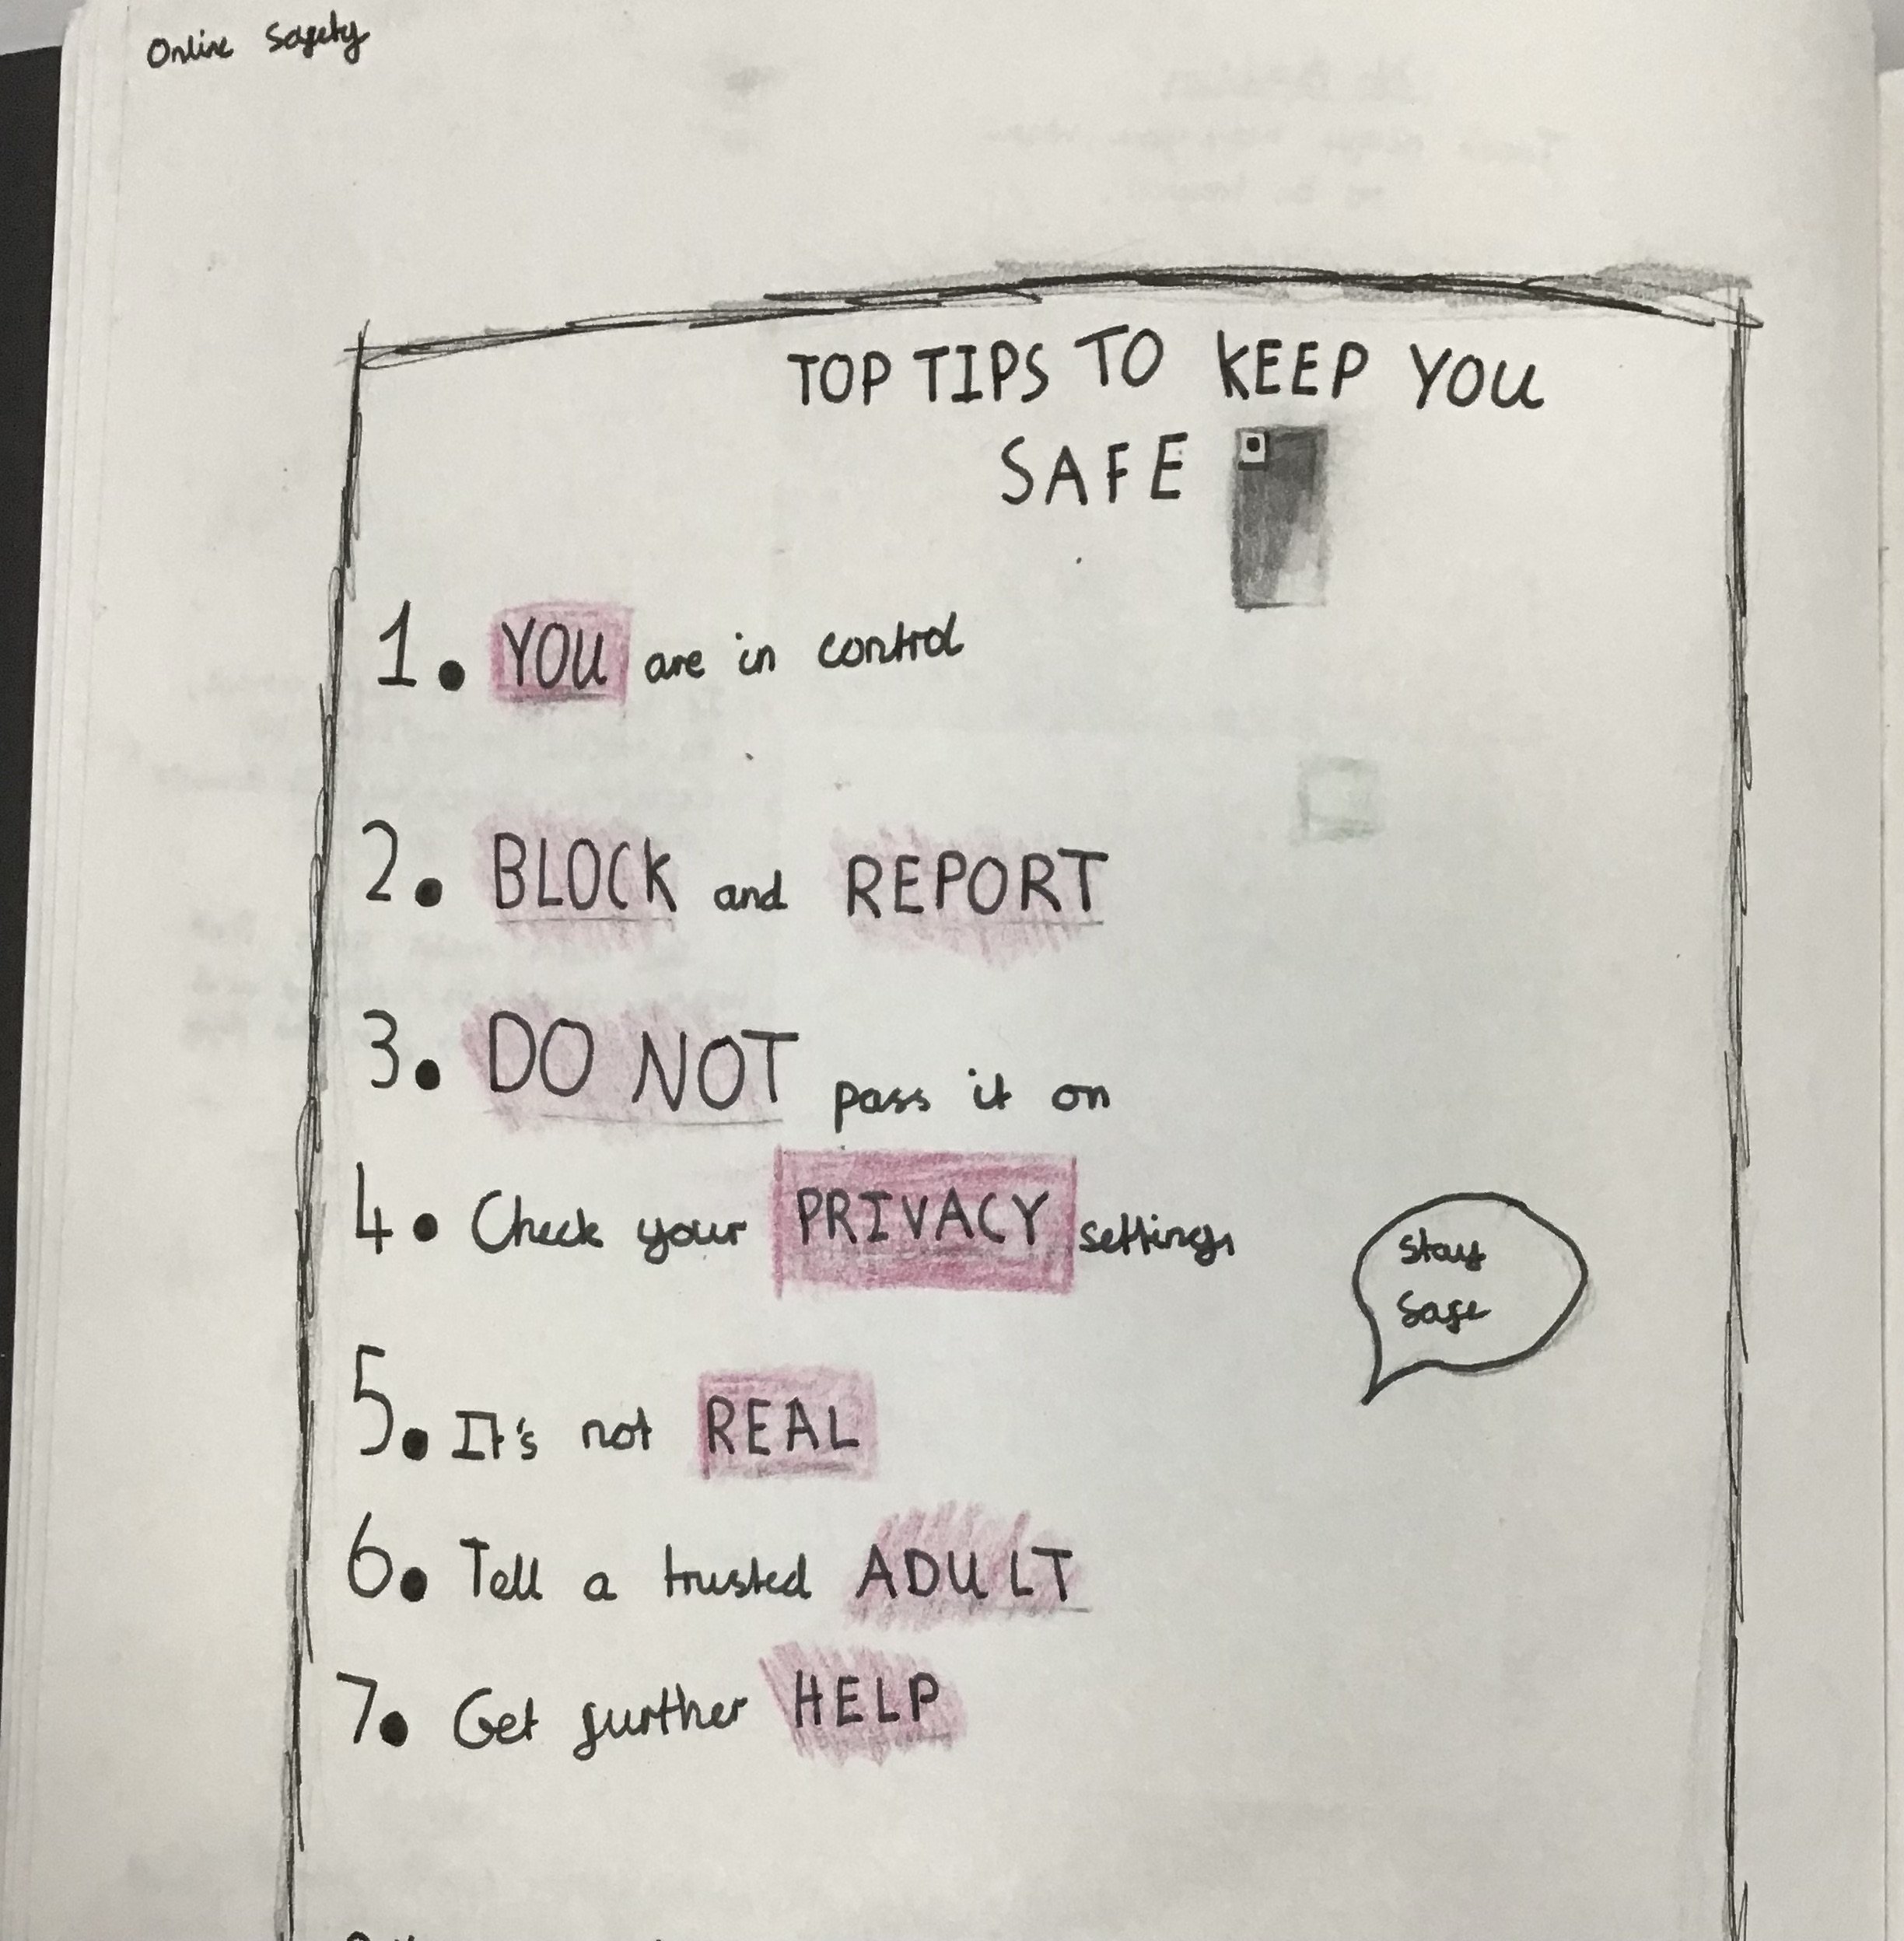 Online Safety
TOP TIPS TO KEEP YOU
SAFE
1. YOU are in control
2. BLOCK and REPORT
3. DO NOT pass it on
4. Check your PRIVACY settings
Stay
Safe
5. It's not REAL
6. Tell a trusted ADULT
7. Get further HELP